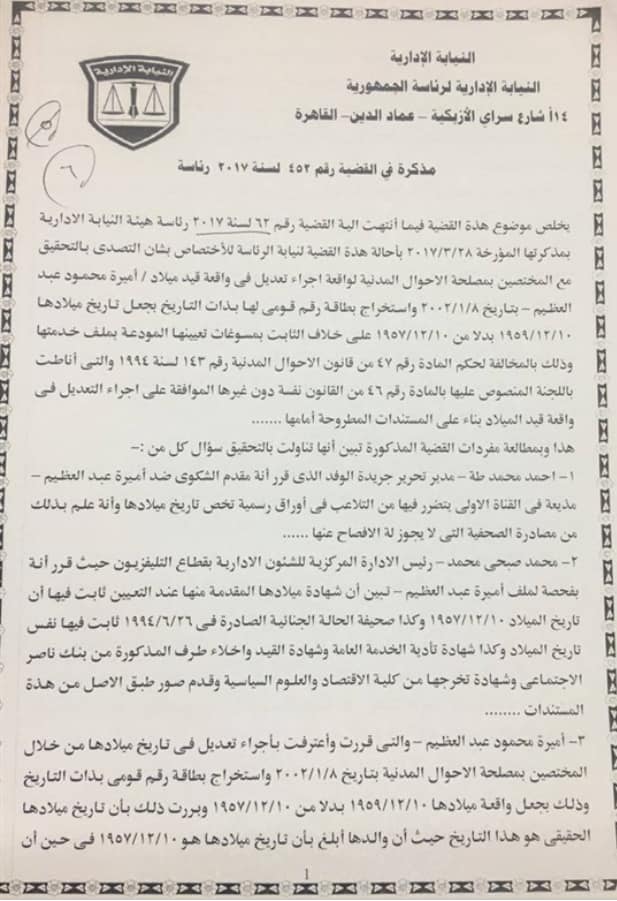 النيابة الإدارية
النيابة الإدارية لرئاسة الجمهورية
١٤أ شارع سراي الأزبكية – عماد الدين– القاهرة
النيابة الإدارية
٦
مذكرة في القضية رقم ٤٥٢ لسنة ٢٠١٧ رئاسة
يخلص موضوع هذة القضية فيما أنتهت الية القضية رقم ٦٢ لسنة ٢٠١٧ رئاسة هيئة النيابة الادارية
بمذكرتها المؤرخة ٢٠١٧/٣/٢٨ بأحالة هذة القضية لنيابة الرئاسة للأختصاص بشان التصدى بالتحقيق
مع المختصين بمصلحة الاحوال المدنية لواقعة اجراء تعديل فى واقعة قيد ميلاد / أميرة محمود عبد
العظيم – بتاريخ ٢٠٠٢/١/٨ واستخراج بطاقة رقم قومى لها بذات التاريخ بجعل تاريخ ميلادها
١٩٥٩/١٢/١٠ بدلا من ١٩٥٧/١٢/١٠ على خلاف الثابت بمسوغات تعيينها المودعة بملف خدمتها
وذلك بالمخالفة لحكم المادة رقم ٤٧ من قانون الاحوال المدنية رقم ١٤٣ لسنة ١٩٩٤ والتى أناطت
باللجنة المنصوص عليها بالمادة رقم ٤٦ من القانون نفسة دون غيرها الموافقة على اجراء التعديل فى
واقعة قيد الميلاد بناء على المستندات المطروحة أمامها .......
هذا وبمطالعة مفردات القضية المذكورة تبين أنها تناولت بالتحقيق سؤال كل من :–
١– احمد محمد طة – مدير تحرير جريدة الوفد الذى قرر أنة مقدم الشكوى ضد أميرة عبد العظيم –
مذيعة فى القناة الاولى يتضرر فيها من التلاعب فى أوراق رسمية تخص تاريخ ميلادها وأنة علم بذلك
من مصادرة الصحفية التى لا يجوز لة الافصاح عنها ......
٢– محمد صبحى محمد – رئيس الادارة المركزية للشئون الادارية بقطاع التليفزيون حيث قرر أنة
بفحصة لملف أميرة عبد العظيم – تبين أن شهادة ميلادها المقدمة منها عند التعيين ثابت فيها أن
تاريخ الميلاد ١٩٥٧/١٢/١٠ وكذا صحيفة الحالة الجنائية الصادرة فى ١٩٩٤/٦/٢٦ ثابت فيها نفس
تاريخ الميلاد وكذا شهادة تأدية الخدمة العامة وشهادة القيد واخلاء طرف المذكورة من بنك ناصر
الاجتماعى وشهادة تخرجها من كلية الاقتصاد والعلوم السياسية وقدم صور طبق الاصل من هذة
المستندات ........
٣– أميرة محمود عبد العظيم – والتى قررت وأعترفت بأجراء تعديل فى تاريخ ميلادها من خلال
المختصين بمصلحة الاحوال المدنية بتاريخ ٢٠٠٢/١/٨ واستخراج بطاقة رقم قومى بذات التاريخ
وذلك بجعل واقعة ميلادها ١٩٥٩/١٢/١٠ بدلا من ١٩٥٧/١٢/١٠ وبررت ذلك بأن تاريخ ميلادها
الحقيقى هو هذا التاريخ حيث أن والدها أبلغ بأن تاريخ ميلادها هو ١٩٥٧/١٢/١٠ فى حين أن
1